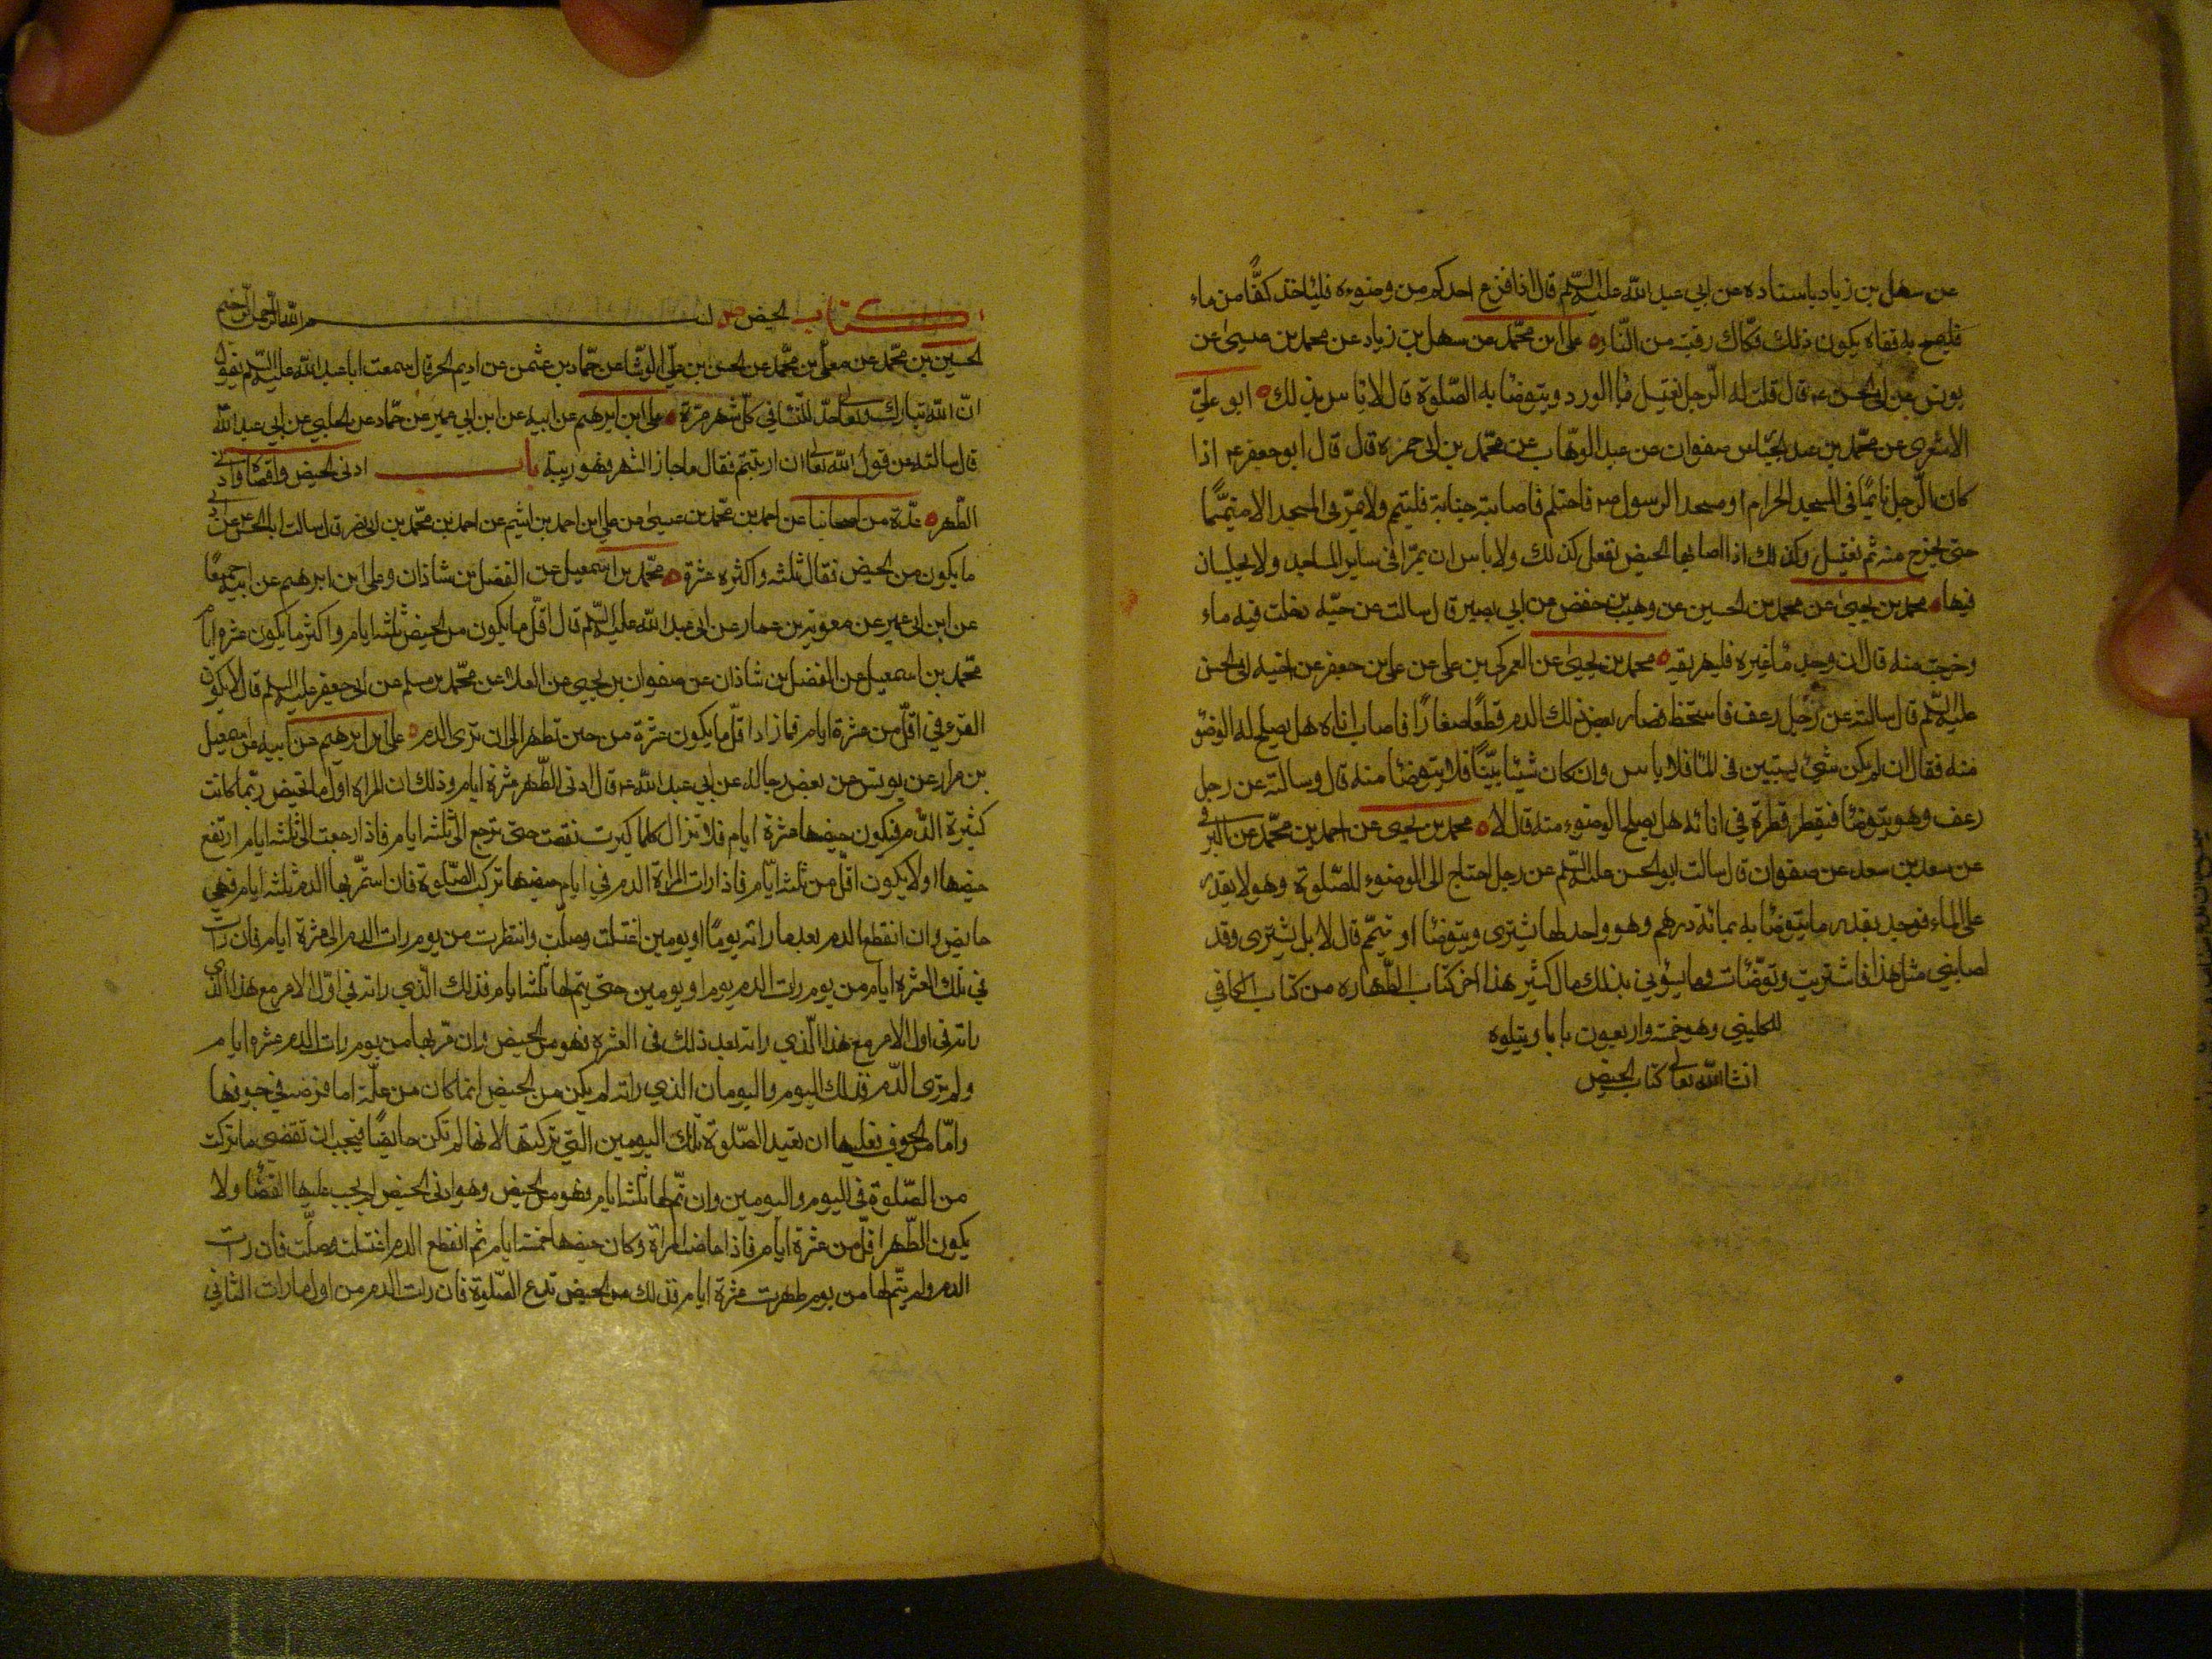 عن سهل بن زياد باسناده عن ابي عبد الله عليه السلم قال اذا فزع احدكم من وضوءه فلياخذ كفًّا من ماء
فليمسح به قفاه يكون ذلك فكّاك رقبته من النّار علي ابن محمّد عن سهل بن زياد عن محمد بن عيسى عن
يونس عن ابي الحسن ع قال قلت له الرّجل يغتسل بماء الورد ويتوضا به الصّلوة قال لا باس بذلك ابو عليّ
الاشعري عن محمّد بن عبد الجبّار عن صفوان عن عبد الوهّاب عن محمّد بن ابي حمزه قال قال ابو جعفر ع اذا
كان الرّجل نائمًا في المسجد الحرام او مسجد الرسول ص فاحتلم فاصابته جنابة فليتيم ولا يمرّ في المسجد الا متيمّمًا
حتى يخرج منه ثم يغتسل وكذلك اذا اصابها الحيض تفعل كذلك ولا باس ان يمرّا في ساير المساجد ولا يجلسان
فيها محمد بن يحيى عن محمد بن الحسين عن وهيب بن حفص عن ابي بصير قال سالت عن حيّه دخلت فيه ماء
وخرجت منه قال ان وجد ماء غيره فليهريقه محمد بن يحيى عن العمركي بن علي عن علي بن جعفر عن اخيه ابي الحسن
عليه السّلم قال سالته عن رجل رعف فامتخط فصار بعض ذلك الدم قطعًا صغارًا فاصاب اناه هل يصلح له الوضو
منه فقال ان لم يكن شئ يستبين في الماء فلا باس وان كان شيئا بيّنًا فلا يتوضا منه قال وسالته عن رجل
رعف وهو يتوضا فيقطر قطرة في انائه هل يصلح الوضوء منه قال لا محمد بن يحيى عن احمد بن محمّد عن البرقي
عن سعد بن سعد عن صفوان قال سالت ابو الحسن عليه السّلم عن رجل احتاج الى الوضوء للصّلوة وهو لا يقدر
على الماء فوجد بقدر ما يتوضا به بمائة درهم وهو واجد لها يشتري ويتوضا او يتيمّم قال لا بل يشتري وقد
اصابني مثل هذا فاشتريت وتوضّات وما يسوني بذلك مال كثير هذا اخر كتاب الطّهاره من كتاب الكافي
للكليني وهو خمسة واربعون بابا ويتلوه
انشا الله تعالى كتاب الحيض
كتاب الحيض من الله الرحمن الرحيم
الحسين بن محمّد عن معلّى بن محمّد عن الحسن بن عليّ الوشّا عن حمّاد بن عثمن عن اديم الحر قال سمعت ابا عبد الله عليه السّلم يقول
انّ الله تبارك وتعالى حدّ للنّسا في كلّ شهر مرّة علي ابن ابرهيم عن ابيه عن ابن ابي عمير عن حمّاد عن الحلبي عن ابي عبد الله
قال سالته عن قول الله تعالى ان ارتبتم فقال ما جاز الشهر فهو ريبة باب ادنى الحيض واقصاه وادنى
الطّهر عدّة من اصحابنا عن احمد بن محمّد بن عيسى عن علي ابن احمد بن اشيم عن احمد بن محمّد بن ابي نصر قال سالت ابا الحسن ع عن ادنى
ما يكون من الحيض فقال ثلثه واكثره عشرة محمّد بن اسمعيل عن الفضل بن شاذان وعلي ابن ابرهيم عن ابيه جميعًا
عن ابن ابي عمير عن معوية بن عمار عن ابي عبد الله عليه السّلم قال اقلّ ما يكون من الحيض ثلثة ايام واكثر ما يكون عشره ايام
محمّد بن اسمعيل عن الفضل بن شاذان عن صفوان بن يحيى عن العلا عن محمّد بن مسلم عن ابي جعفر عليه السلم قال لا يكون
القرء في اقلّ من عشرة ايام فما زاد اقلّ ما يكون عشرة من حين تطهر الى ان ترى الدم علي ابن ابرهيم عن ابيه عن اسمعيل
بن مرار عن يونس عن بعض رجاله عن ابي عبد الله ع قال ادنى الطّهر عشرة ايام وذلك ان المراه اول ما تحيض ربّما كانت
كثيرة الدّم فيكون حيضها عشرة ايام فلا تزال كلما كبرت نقصت حتى ترجع الى ثلثه ايام فاذا رجعت الى ثلثه ايام ارتفع
حيضها ولا يكون اقلّ من ثلثة ايّام فاذا رات المراة الدم في ايام حيضها تركت الصّلوة فان استمرّ بها الدم ثلثه ايام فهي
حايض وان انقطع الدم بعد ما راته يومًا او يومين اغتسلت وصلّت وانتظرت من يوم رات الدم الى عشرة ايام فان رات
في تلك العشره ايام من يوم رات الدم يوما او يومين حتى يتم لها ثلثة ايام فذلك الّذي راته في اوّل الامر مع هذا الذي
راته في اول الامر مع هذا الّذي راته بعد ذلك في العشره فهو من الحيض وان مرّ بها من يوم رات الدم عشره ايام
ولم ترى الدّم فذلك اليوم واليومان الذي راته لم يكن من الحيض انما كان من علّة اما قرحة في جوفها
وامّا من الجوف فعليها ان تعيد الصّلوة تلك اليومين التي تركتها لانها لم تكن حايضًا فيجب ان تقضي ما تركت
من الصّلوة في اليوم واليومين وان تمّ لها ثلثة ايام فهو من الحيض وهو ادنى الحيض لم يجب عليها القضا ولا
يكون الطّهر اقلّ من عشرة ايّام فاذا حاضت المراة وكان حيضها خمسة ايام ثم انقطع الدم اغتسلت وصلّت فان رات
الدم ولم يتّم لها من يوم طهرت عشرة ايام فذلك من الحيض تدع الصّلوة فان رات الدم من اول ما رات الثاني